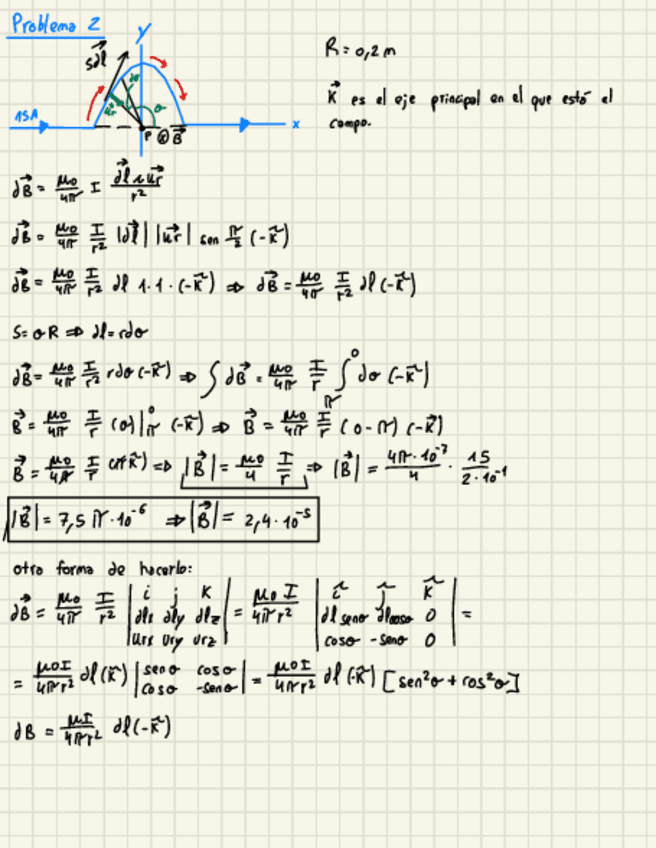 Problema 2
y
Sdl
dθ
θ
ur
15A
x
P ⊗ B⃗
R = 0,2 m
K⃗ es el eje principal en el que está el
campo.
dB⃗ = μ0/4π I dl⃗ ∧ ur⃗ / r²
dB⃗ = μ0/4π I/r² |dl⃗| |ur⃗| sen π/2 (-k⃗)
dB⃗ = μ0/4π I/r² dl 1·1·(-k⃗) ⇒ dB⃗ = μ0/4π I/r² dl (-k⃗)
S = θR ⇒ dl = rdθ
dB⃗ = μ0/4π I/r² rdθ (-k⃗) ⇒ ∫ dB⃗ = μ0/4π I/r ∫π0 dθ (-k⃗)
B⃗ = μ0/4π I/r (θ)|π0 (-k⃗) ⇒ B⃗ = μ0/4π I/r (0-π) (-k⃗)
B⃗ = μ0/4π I/r (πk⃗) ⇒ |B⃗| = μ0/4 I/r ⇒ |B⃗| = 4π·10⁻⁷/4 · 15/2·10⁻¹
|B⃗| = 7,5 π·10⁻⁶ ⇒ |B⃗| = 2,4·10⁻⁵
otra forma de hacerlo:
dB⃗ = μ0/4π I/r² | i j k ; dlx dly dlz ; urx ury urz | = μ0 I/4πr² | i j k ; dl senθ dlcosθ 0 ; cosθ -senθ 0 | =
= μ0I/4πr² dl (k⃗) | senθ cosθ ; cosθ -senθ | = μ0I/4πr² dl (-k⃗) [sen²θ + cos²θ]
dB = μI/4πr² dl (-k⃗)